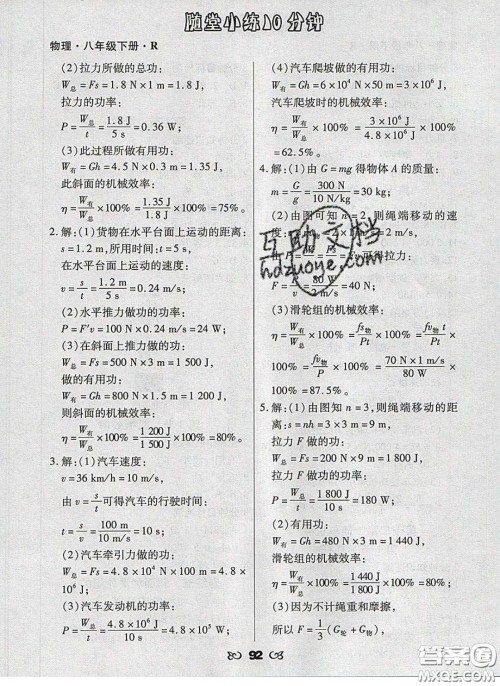 随堂小练10分钟
物理·八年级下册·R
(2)拉力所做的总功:
W总=Fs=1.8 N×1 m=1.8 J,
拉力的功率:
P=W总/t=1.8 J/5 s=0.36 W;
(3)此过程所做有用功:
W有=Gh=4.5 N×0.3 m=1.35 J,
此斜面的机械效率:
η=W有/W总×100%=1.35 J/1.8 J×100%=75%。
2.解:(1)货物在水平台面上运动的距离:
s=1.2 m,所用时间:t=5 s,
在水平台面上运动的速度:
v=s/t=1.2 m/5 s=0.24 m/s;
(2)水平推力做功的功率:
P=F′v=100 N×0.24 m/s=24 W;
(3)在斜面上推力做的功:
W总=Fs=500 N×3 m=1 500 J,
做的有用功:
W有=Gh=800 N×1.5 m=1 200 J,
则斜面的机械效率:
η=W有/W总×100%=1 200 J/1 500 J×100%=80%。
3.解:(1)汽车速度:
v=36 km/h=10 m/s,
由v=s/t可得汽车的行驶时间:
t=s/v=100 m/10 m/s=10 s;
(2)汽车牵引力做的功:
W总=Fs=4.8×10⁴ N×100 m=4.8×10⁶ J;
(3)汽车发动机的功率:
P=W总/t=4.8×10⁶ J/10 s=4.8×10⁵ W;
(4)汽车爬坡做的有用功:
W有=Gh=6×10⁴ N×50 m=3×10⁶ J,
汽车爬坡时的机械效率:
η=W有/W总×100%=3×10⁶ J/4.8×10⁶ J×100%
=62.5%。
4.解:(1)由G=mg得物体A的质量:
m=G/g=300 N/10 N/kg=30 kg;
(2)由图可知n=2,则绳端移动的速
度:
=2 m/s,
可得拉力:
F=P/v=80 W/2 m/s=40 N;
(3)滑轮组的机械效率:
η=W有/W总×100%=fs物/Pt×100%=fv物t/Pt×
100%=fv物/P×100%=70 N×1 m/s/80 W×100%
=87.5%。
5.解:(1)由图知n=3,则绳端移动的距
离:s=nh=3×3 m=9 m,
拉力F做的功:
W总=Fs=200 N×9 m=1 800 J,
拉力F的功率:
P=W总/t=1 800 J/10 s=180 W;
(2)有用功:
W有=Gh=480 N×3 m=1 440 J,
滑轮组的机械效率:
η=W有/W总×100%=1 440 J/1 800 J×100%=80%;
(3)因为不计绳重和摩擦,
所以F=1/3(G轮+G物),
互助文档
hdzuoye.com
92
答案圈
MXQE.COM